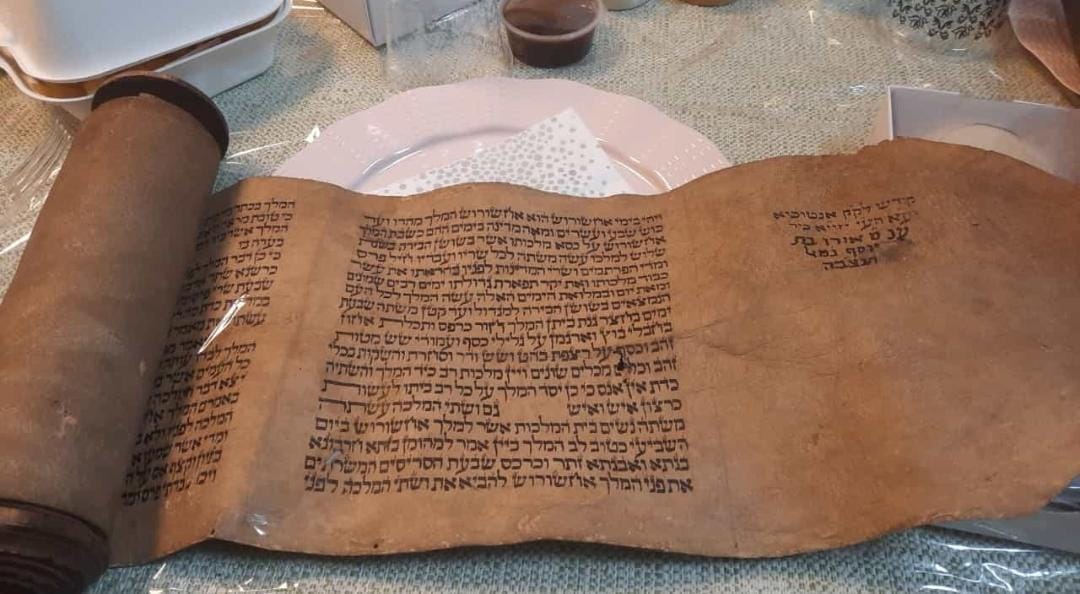 קודש לקק אנטוכיא
אורו בת
יוסף
תנצבה
ויהי בימי אחשורוש הוא אחשורוש המלך מהדו ועד
כוש שבע ועשרים ומאה מדינה בימים ההם כשבת המלך
אחשורוש על כסא מלכותו אשר בשושן הבירה בשנת
שלוש למלכו עשה משתה לכל שריו ועבדיו חיל פרס
ומדי הפרתמים ושרי המדינות לפניו בהראתו את עשר
כבוד מלכותו ואת יקר תפארת גדולתו ימים רבים שמונים
ומאת יום ובמלואת הימים האלה עשה המלך לכל העם
הנמצאים בשושן הבירה למגדול ועד קטן משתה שבעת
ימים בחצר גנת ביתן המלך חור כרפס ותכלת אחוז
בחבלי בוץ וארגמן על גלילי כסף ועמודי שש מטות
זהב וכסף על רצפת בהט ושש ודר וסחרת והשקות בכלי
זהב וכלים מכלים שונים ויין מלכות רב כיד המלך והשתיה
כדת אין אנס כי כן יסד המלך על כל רב ביתו לעשות
כרצון איש ואיש גם ושתי המלכה עשתה
משתה נשים בית המלכות אשר למלך אחשורוש ביום
השביעי כטוב לב המלך ביין אמר למהומן בזתא חרבונא
בגתא ואבגתא זתר וכרכס שבעת הסריסים המשרתים
את פני המלך אחשורוש להביא את ושתי המלכה לפני
המלך בכתר
כי טובת
המלך אשר
בערה בו
כי כן דבר המלך
כרשנא שתר
שבעת שרי
עשתה את מאמר
המלך לבדו
כל העמים אשר
יצא דבר המלכה
באמרם המלך
המלכה לפניו ולא
ומדי אשר שמעו
בזיון וקצף אם על